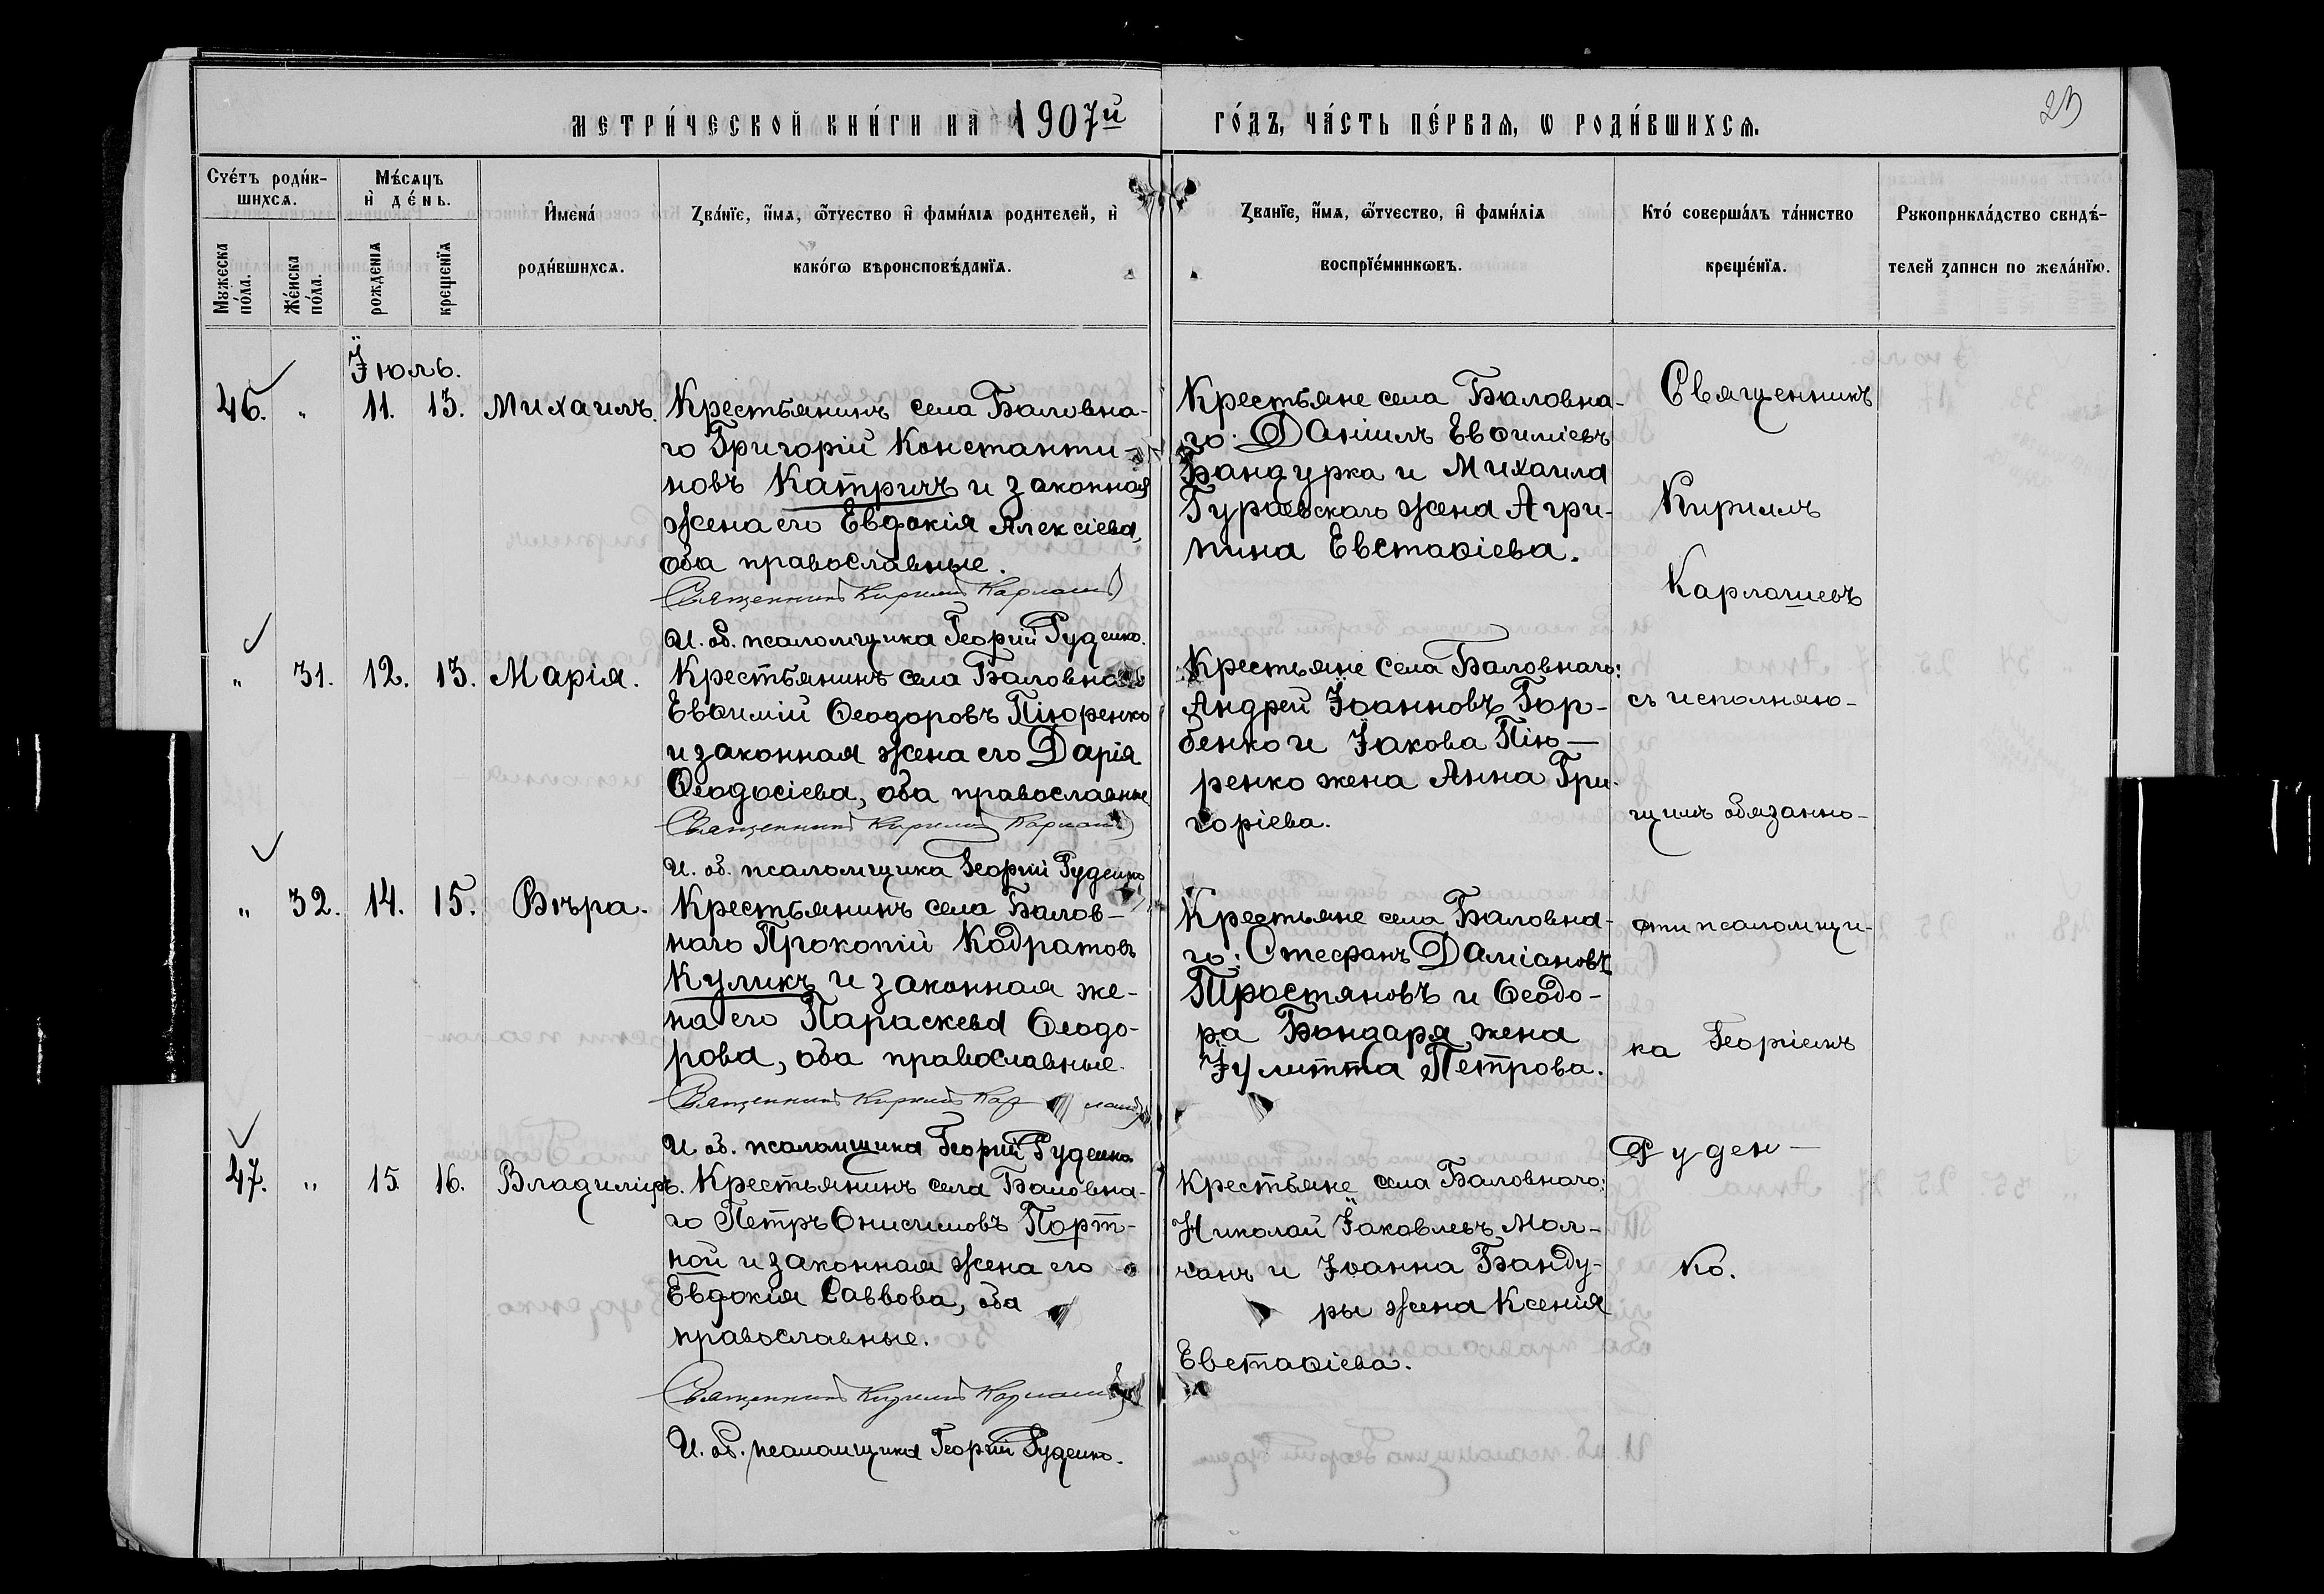 метри́ческой кни́ги на 1907й
го́дъ, ча́сть пе́рваѧ, ѡ роди́вшихсѧ.
23
Счéтъ роди́в-
шихсѧ.
Мужеска
по́ла.
Же́нска
по́ла.
Мѣ́сѧцъ
и҆ де́нь.
рожденіѧ
крещеніѧ
И҆мена́
роди́вшихсѧ.
Зва́нїе, и҆́мѧ, ѻ҆́тчество и҆ фами́лїѧ родителей, и҆
како́гѡ вѣроисповѣ́данїѧ.
Зва́нїе, и҆́мѧ, ѻ҆́тчество, и҆ фами́лїѧ
воспрїе́мникѡвъ.
Кто́ соверша́лъ та́инство
креще́нїѧ.
Рукоприкла́дство свидѣ́-
телей записи по жела́нїю.
Іюль.
46. " 11. 13. Михаилъ.
Крестьянинъ села Баловна-
го Григорій Константи-
новъ Катричъ и законная
жена его Евдокія Алексіева,
оба православные.
Священникъ Кирилъ
И. об. псаломщика Георгій Руденко.
Крестьяне села Баловна-
го: Даніилъ Евѳиміевъ
Бандурка и Михаила
Гураевскаго жена Агри-
пина Евстаѳіева.
" 31. 12. 13. Марія.
Крестьянинъ села Баловнаго
Евѳимій Ѳеодоровъ Пiюренко
и законная жена его Дарія
Ѳеодосіева, оба православные
Священникъ Кирилъ
И. об. псаломщика Георгій Руденко
Крестьяне села Баловнаго:
Андрей Іоанновъ Гор-
бенко и Іакова Пiю-
ренко жена Анна Гри-
горіева.
" 32. 14. 15. Вѣра.
Крестьянинъ села Балов-
наго Прокопій Кодратовъ
Куликъ и законная же-
на его Параскева Ѳеодо-
рова, оба православные.
Священникъ Кирилъ
И. об. псаломщика Георгій Руденко
Крестьяне села Баловна-
го: Стефанъ Даміановъ
Тростяновъ и Ѳеодо-
ра Бондаря жена
Іулитта Петрова.
47. " 15 16. Владиміръ.
Крестьянинъ села Баловна-
го Петръ Онисимовъ Порт-
ной и законная жена его
Евдокія Саввова, оба
православные.
Священникъ Кирилъ
И. об. псаломщика Георгій Руденко.
Крестьяне села Баловнаго:
Николай Іаковлевъ Мол-
чанъ и Іоанна Банду-
ры жена Ксенія
Евстаѳіева.
Священникъ
Кирилъ
Карлашевъ
съ исполняю-
щимъ обязанно-
сти псаломщи-
ка Георгіемъ
Руден-
ко.